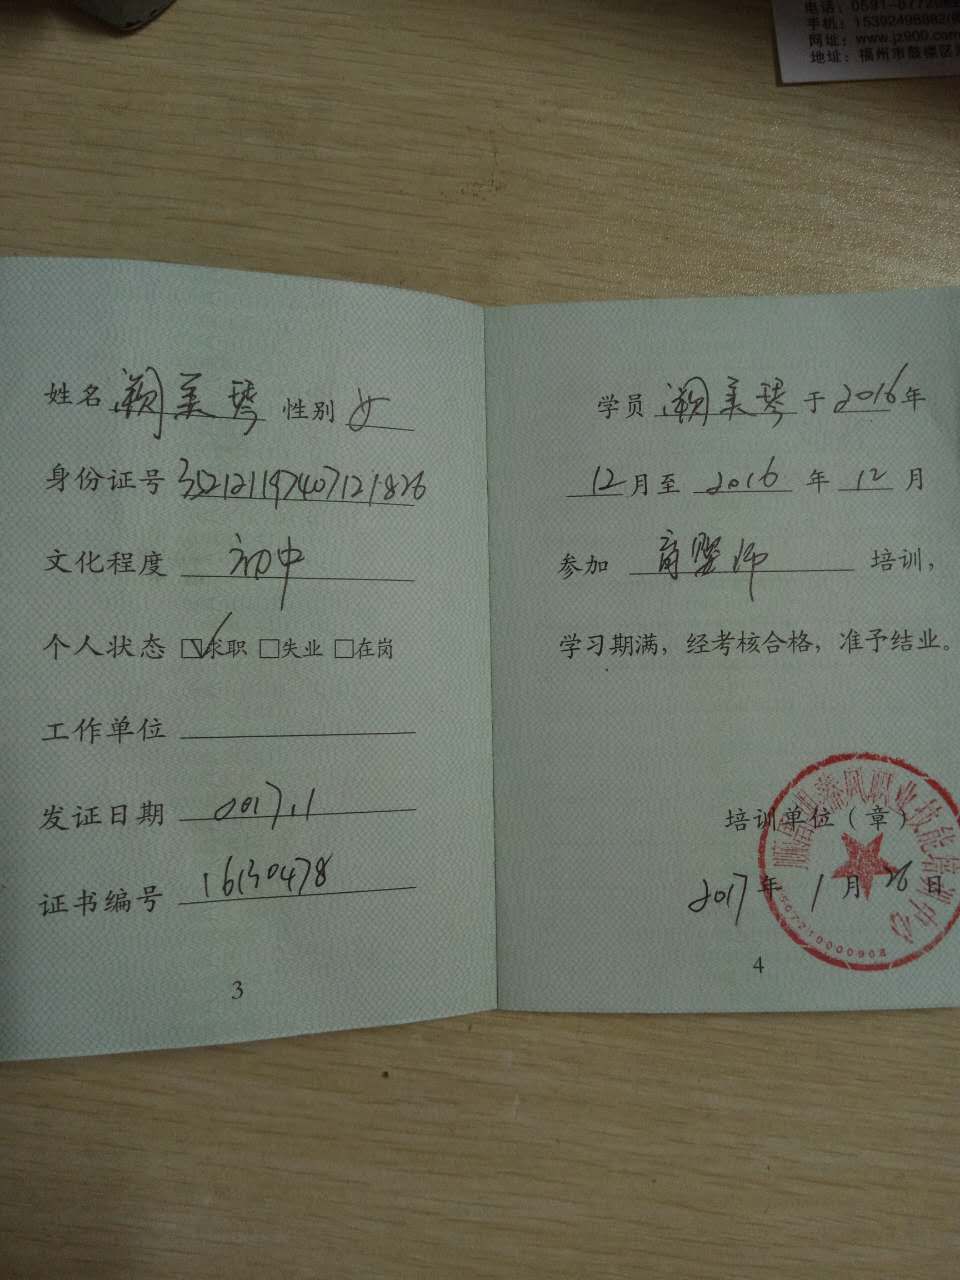 电话：0591-8772
手机：15392498882
网址：www.jz900.com
地址：福州市鼓楼区
姓名 阙美琴 性别 女
身份证号 352121197407121826
文化程度 初中
个人状态 ☑求职 □失业 □在岗
工作单位
发证日期 2017.1
证书编号 16130478
3
学员 阙美琴 于 2016 年
12 月至 2016 年 12 月
参加 育婴师 培训，
学习期满，经考核合格，准予结业。
培训单位（章）
2017 年 1 月 26 日
职业技能培训中心
3507210000908
4